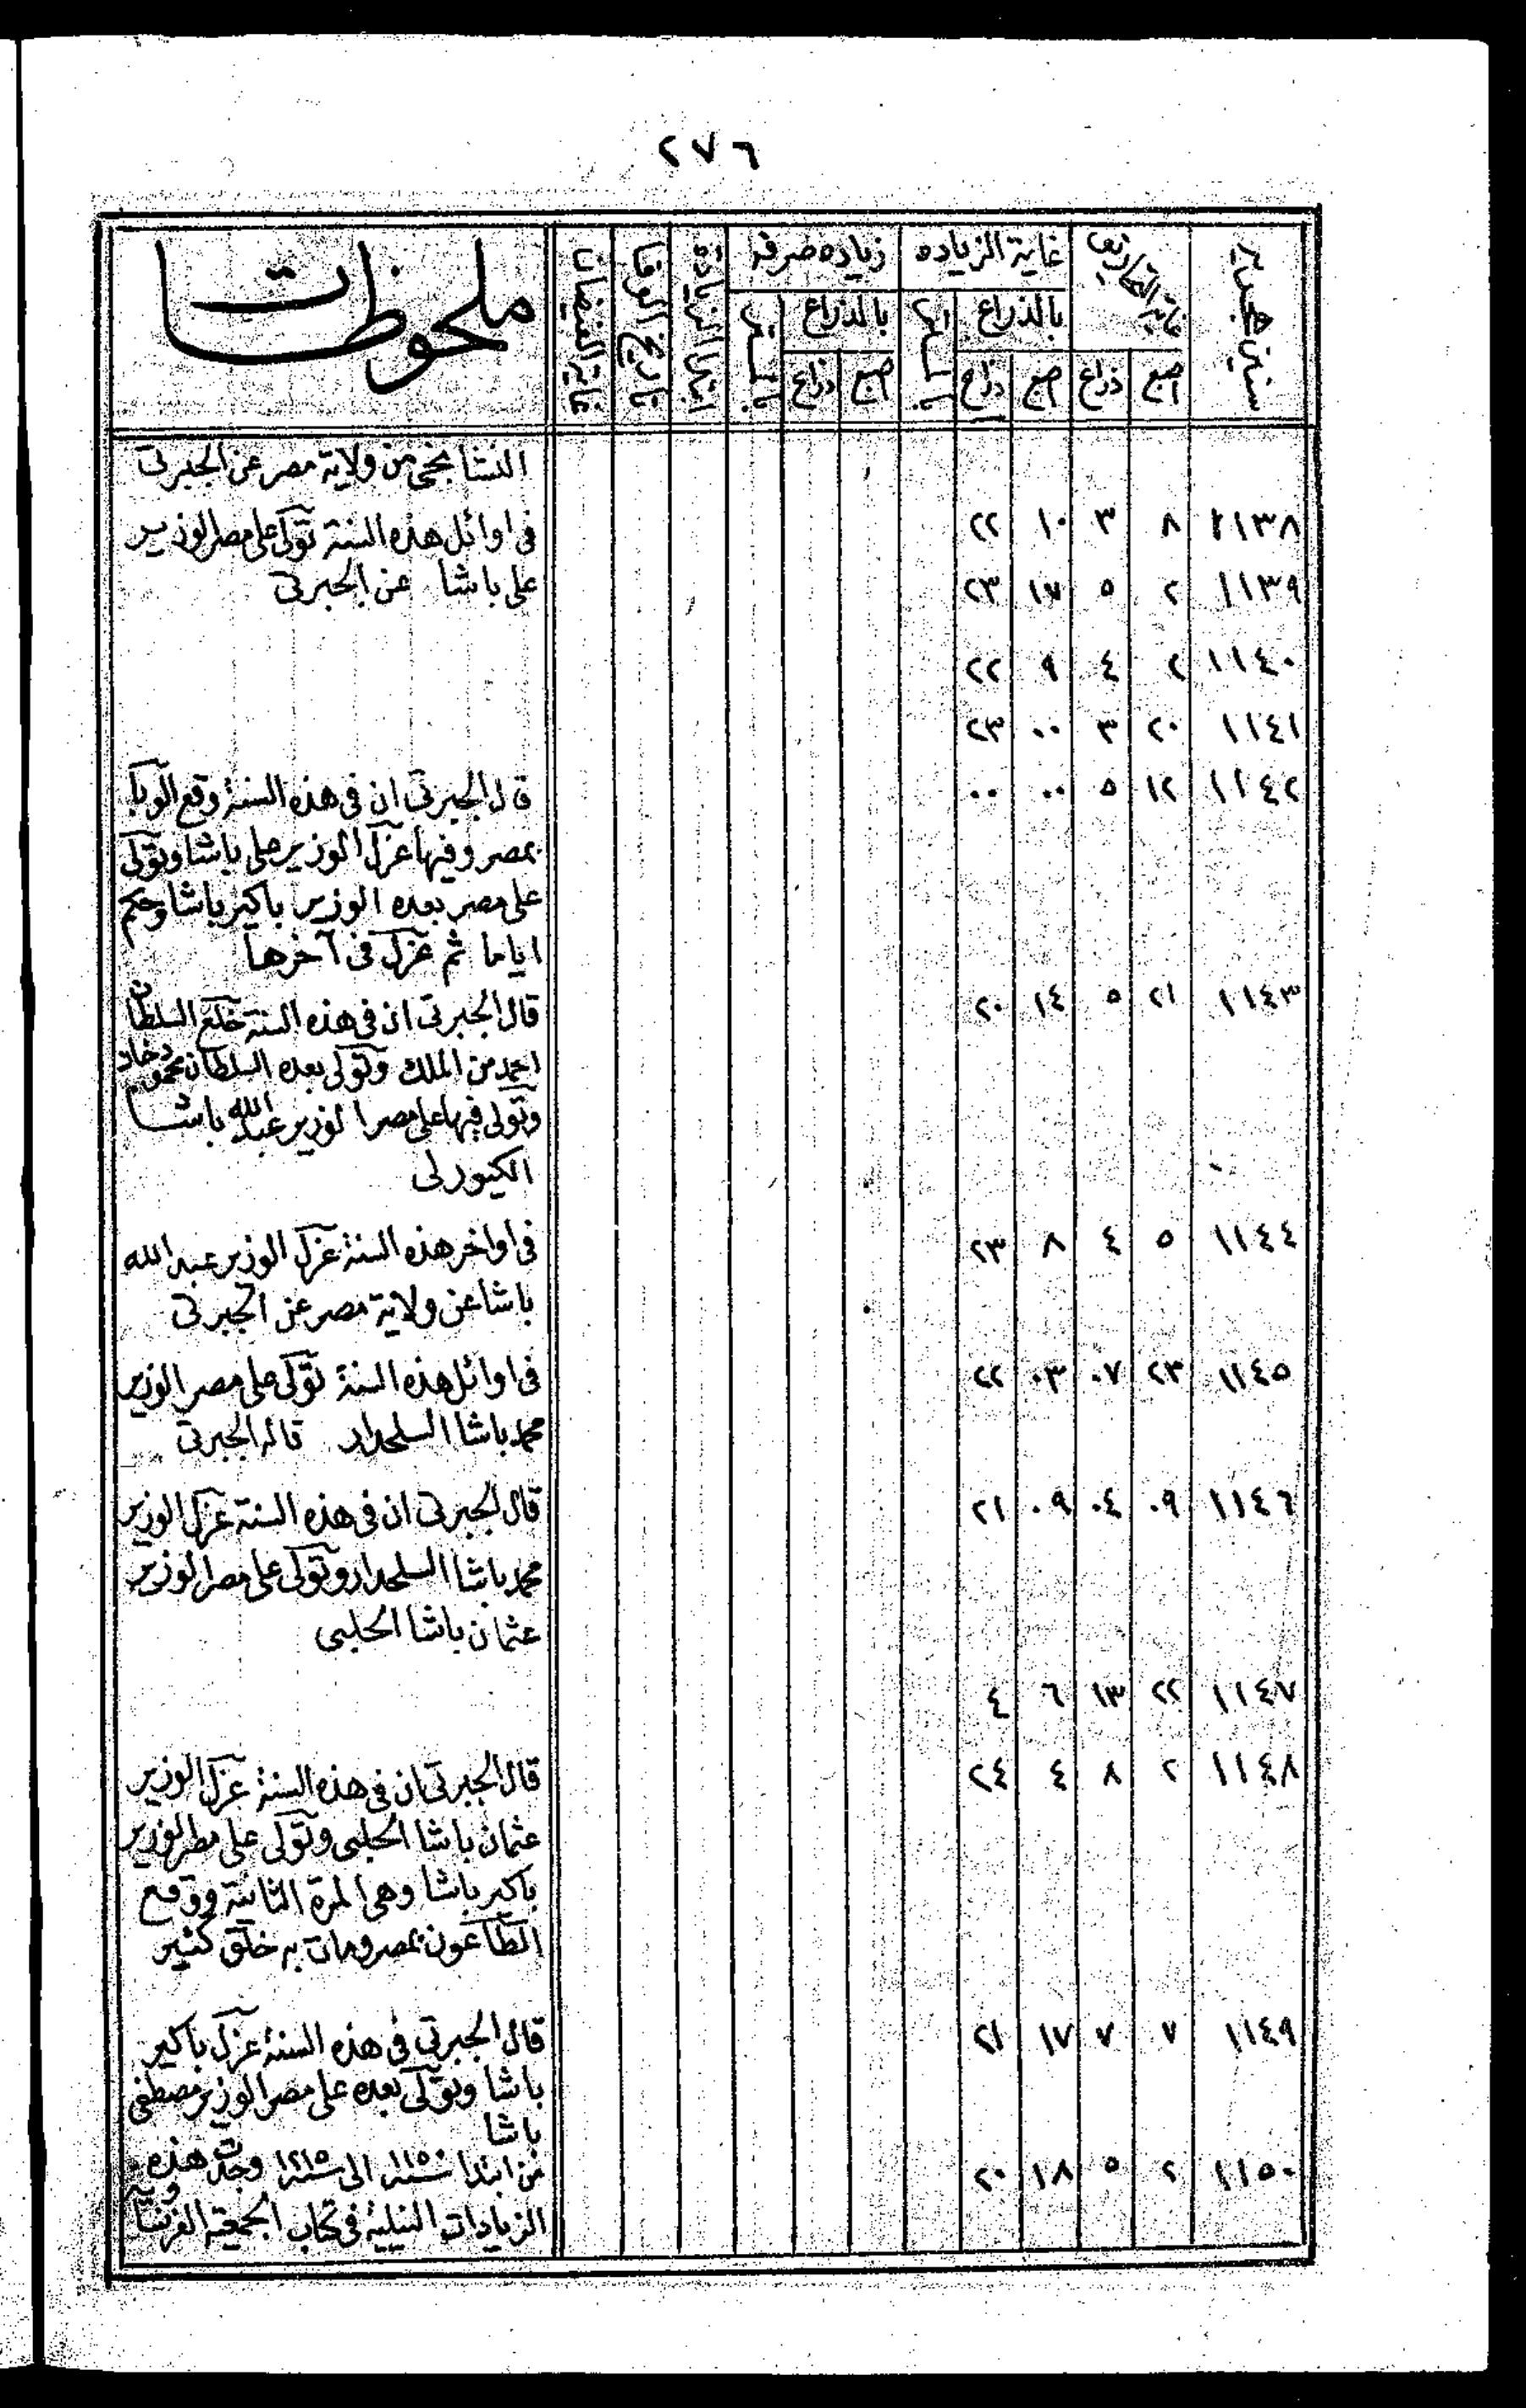 ٢٧٦
سنين هجريه
غاية التحاريق
غاية الزياده
زياده صرفه
ابتدا الزيادة
تاريخ الوفا
غاية الفيضان
ملحوظات
بالذراع
بالذراع
اصبع ذراع اصبع ذراع اصبع ذراع
النشانجى من ولاية مصر عن الجبرتى
١١٣٨ ٨ ٣ ١٠ ٢٢ فى اوائل هذه السنة تولى على مصر الوزير
على باشا عن الجبرتى
١١٣٩ ٢ ٥ ١٧ ٢٣
١١٤٠ ٢ ٤ ٩ ٢٢
١١٤١ ٢٠ ٣ ٠٠ ٢٣
١١٤٢ ١٢ ٥ ٠٠ ٠٠ قال الجبرتى ان فى هذه السنة وقع الوبا
بمصر وفيها عزل الوزير على باشا وتولى
على مصر بعده الوزير باكير باشا وحكم
اياما ثم عزل فى آخرها
١١٤٣ ٢١ ٥ ١٤ ٢٠ قال الجبرتى ان فى هذه السنة خلع السلطان
احمد من الملك وتولى بعده السلطان محمود خان
وتولى فيها على مصر الوزير عبد الله باشا
الكبورلى
١١٤٤ ٥ ٤ ٨ ٢٣ فى اواخر هذه السنة عزل الوزير عبد الله
باشا عن ولاية مصر عن الجبرتى
١١٤٥ ٢٣ ٠٧ ٠٣ ٢٢ فى اوائل هذه السنة تولى على مصر الوزير
محمد باشا السلحدار قاله الجبرتى
١١٤٦ ٠٩ ٠٤ ٠٩ ٢١ قال الجبرتى ان فى هذه السنة عزل الوزير
محمد باشا السلحدار وتولى على مصر الوزير
عثمان باشا الحلبى
١١٤٧ ٢٢ ١٣ ٦ ٤
١١٤٨ ٢ ٨ ٤ ٢٤ قال الجبرتى ان فى هذه السنة عزل الوزير
عثمان باشا الحلبى وتولى على مصر الوزير
باكير باشا وهى المرة الثانية ووقع
الطاعون بمصر ومات به خلق كثير
١١٤٩ ٧ ٧ ١٧ ٢١ قال الجبرتى فى هذه السنة عزل باكير
باشا وتولى بعده على مصر الوزير مصطفى
باشا
١١٥٠ ٢ ٥ ١٨ ٢٠ من ابتدا سنة ١١٥٠ الى سنة ١٢١٥ وجدت هذه
الزيادات النيلية فى كتاب الجمعية الفرنساوية